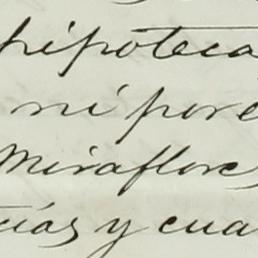 hipoteca
ni por e
Miraflores
cías y cua